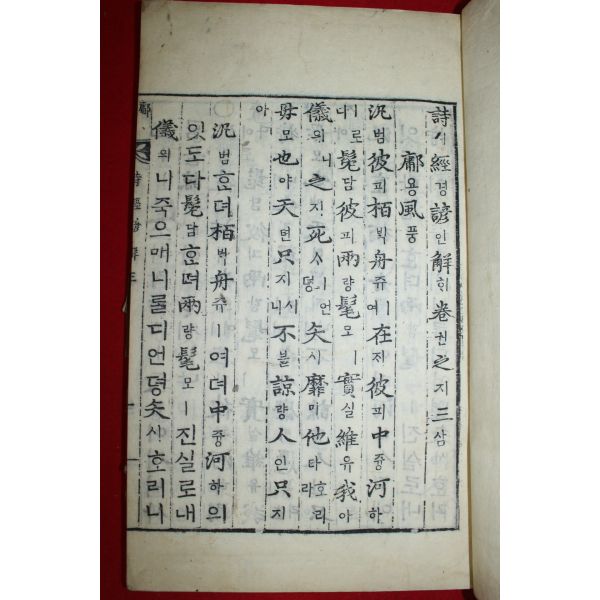 詩시經경諺언解ᄒᆡ卷권之지三삼
鄘용風풍
汎범彼피栢ᄇᆡᆨ舟쥬ㅣ여在ᄌᆡ彼피中듕河하
ㅣ로다髧담彼피兩량髦모ㅣ實실維유我아
儀의니之지死ᄉᆞㅣ언뎡矢시靡미他타호리라
母모也야天텬只지시니不블諒량人인只지
아
汎범ᄒᆞᆫ뎌栢ᄇᆡᆨ舟쥬ㅣ여뎌中듕河하의
잇도다髧담ᄒᆞᆫ뎌兩량髦모ㅣ진실로내
儀의니죽으매니를디언뎡矢시호리니
鄘 詩經諺解三